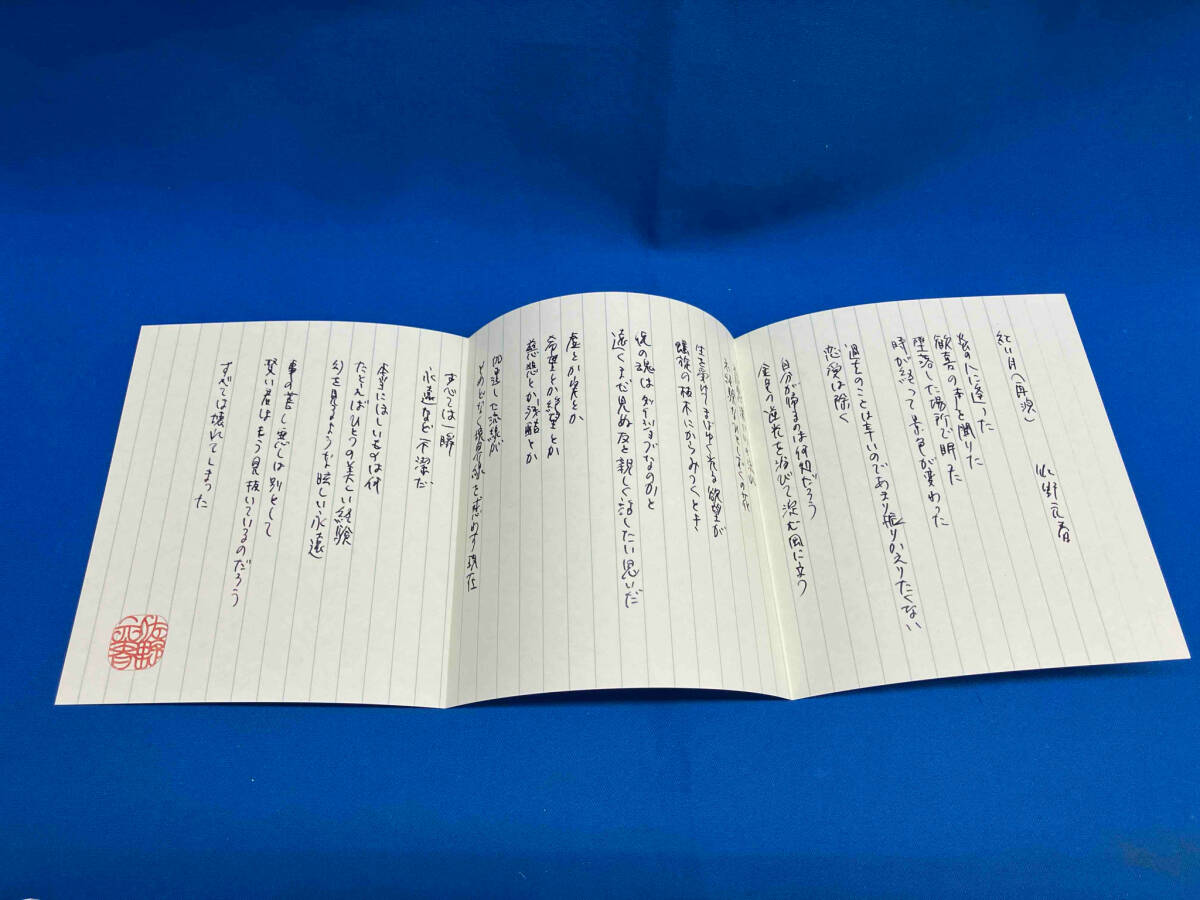 紅い月(再演)
佐野元春
数の人に逢った
歓喜の声と聞りた
堕落した場所で眠った
時が経って景色が変わった
過去のことは辛いのであまり振りかえりたくない
恋愛は除く
自分が帰るのは何処だろう
金色の逆光を浴びて淀む風に立つ
生を受け まばゆく光る欲望が
蠟燭の植木にからみつくとき
僕の魂は
遠くまだ見ぬ友と親しく話したい思いだ
虚とか実とか
希望とか絶望とか
慈悲とか
加速した流線が
とめどなく境界線を求めず現在
すべては一瞬
永遠など不潔だ
本当にほしいものは何
たとえばひとつの美しい経験
幻を見るような眩しい永遠
事の善し悪しは別として
賢い君はもう見抜いているのだろう
すべては壊れてしまった
佐野元春